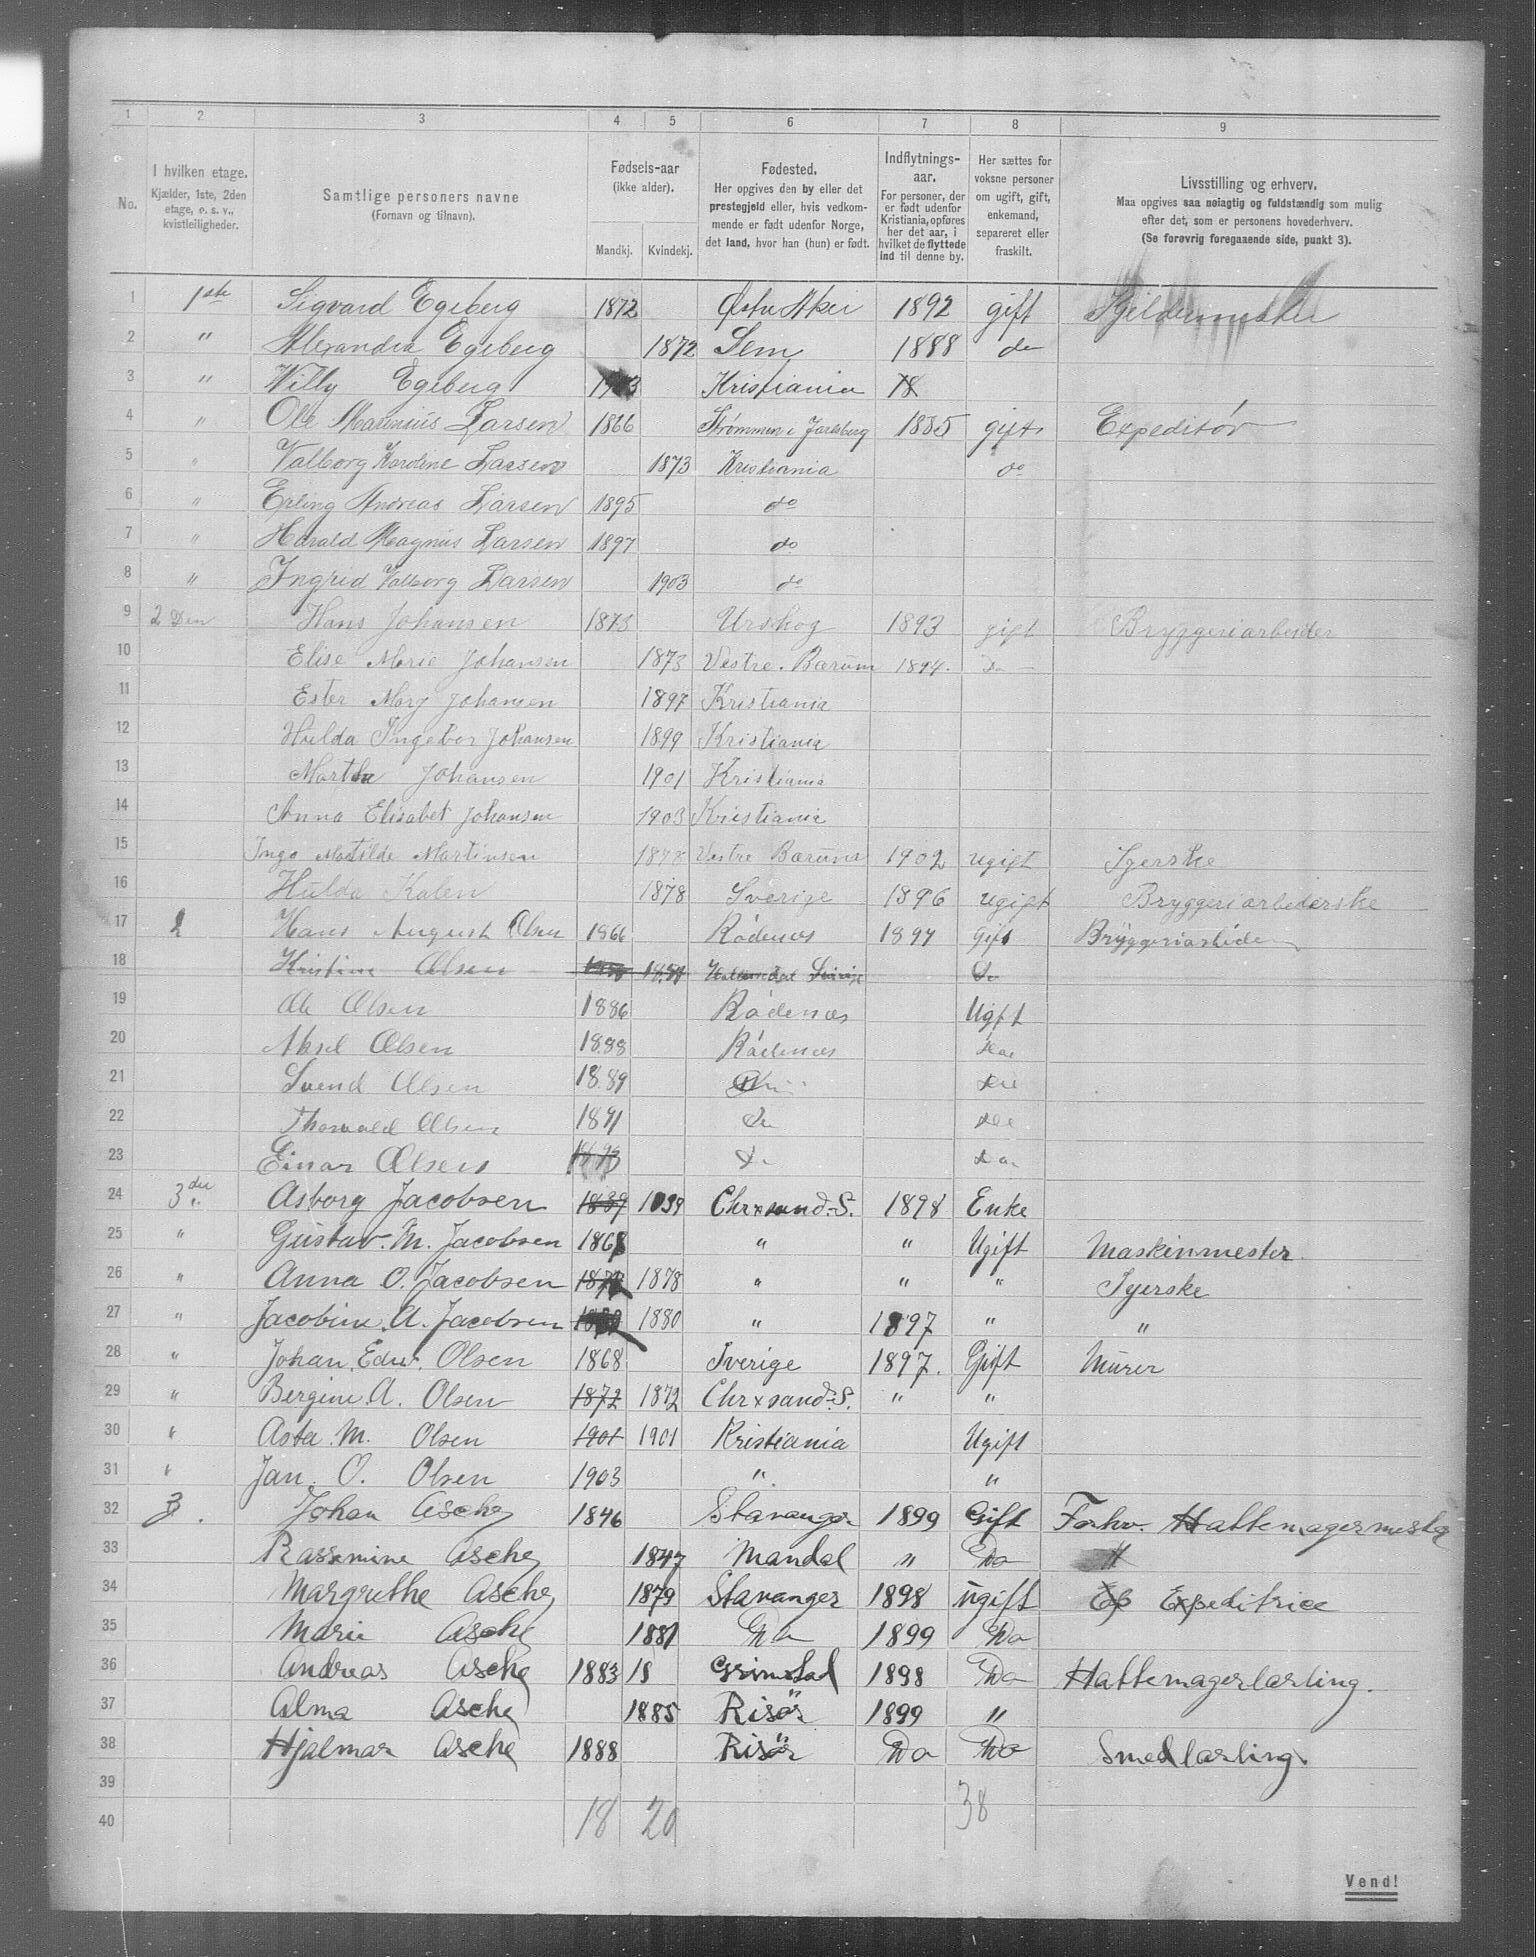 1 2 3 4 5 6 7 8 9
No.
I hvilken etage.
Kjælder, 1ste, 2den
etage, o. s. v.,
kvistleiligheder.
Samtlige personers navne
(Fornavn og tilnavn).
Fødsels-aar
(ikke alder).
Mandkj. Kvindekj.
Fødested.
Her opgives den by eller det
prestegjeld eller, hvis vedkom-
mende er født udenfor Norge,
det land, hvor han (hun) er født.
Indflytnings-
aar.
For personer, der
er født udenfor
Kristiania, opføres
her det aar, i
hvilket de flyttede
ind til denne by.
Her sættes for
voksne personer
om ugift, gift,
enkemand,
separeret eller
fraskilt.
Livsstilling og erhverv.
Maa opgives saa nøiagtig og fuldstændig som mulig
efter det, som er personens hovederhverv.
(Se forøvrig foregaaende side, punkt 3).
1 1ste Sigvard Egeberg 1872 Østre Aker 1892 gift
2 " Alexandra Egeberg 1872 Sem 1888 do
3 " Willy Egeberg Kristiania 18
4 " Ole Marinius Larsen 1866 Strømmen i Jarlsberg 1885 gift Expeditør
5 " Valborg Karoline Larsen 1873 Kristiania do
6 " Erling Andreas Larsen 1895 do
7 " Harald Magnus Larsen 1897 do
8 " Ingrid Valborg Larsen 1903 do
9 2 Den Hans Johansen 1873 Urskog 1893 gift Bryggeriarbeider
10 Elise Marie Johansen 1873 Vestre. Bærum 1894. Do
11 Ester Mary Johansen 1897 Kristiania
12 Hulda Ingebor Johansen 1899 Kristiania
13 Martha Johansen 1901 Kristiania
14 Anna Elisabet Johansen 1903 Kristiania
15 Inga Matilde Martinsen 1878 Vestre Bærum 1902 ugift Syerske
16 Hulda Kalen 1878 Sverige 1896 ugift Bryggeriarbeiderske
17 2 Hans August Olsen 1866 Rødenæs 1897 Gift Bryggeriarbeide
18 Kristine Olsen Do
19 Ole Olsen 1886 Rødenæs Ugift
20 Aksel Olsen 1888 Rødenæs
21 Svend Olsen 1889
22 Thorvald Olsen 1891 Do
23 Einar Olsen 1893 Do Do
24 3die Asborg Jacobsen 1839 1839 Chr×sand.S. 1898 Enke
25 " Gustav. M. Jacobsen 1868 " " Ugift Maskinmester.
26 " Anna O. Jacobsen 1878 1878 " " " Syerske
27 " Jacobine. A. Jacobsen 1880 " 1897 " "
28 " Johan. Edw. Olsen 1868 Sverige 1897. Gift Murer
29 " Bergine. A. Olsen 1872 1872 Chr×sand.S. " "
30 " Asta. M. Olsen 1901 1901 Kristiania Ugift
31 " Jan. O. Olsen 1903 " "
32 3. Johan Asche 1846 Stavanger 1899 Gift Forhv. Hattemagermester
33 Rassmine Asche 1847 Mandal " Do
34 Margrethe Asche 1879 Stavanger 1898 ugift Ep Expeditrice
35 Marie Asche 1881 Do 1899 Do
36 Andreas Asche 1883 18 Grimstad 1898 Do Hattemagerlærling.
37 Alma Asche 1885 Risør 1899 "
38 Hjalmar Asche 1888 Risør Do Do Smedlærling.
39
40 18 20 38
Vend!